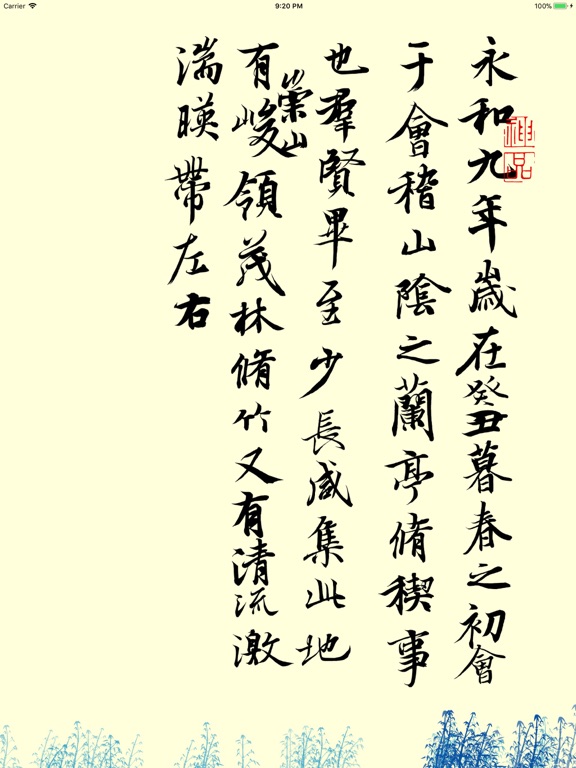 Carrier 9:20 PM 100%
永和九年歲在癸丑暮春之初會
于會稽山陰之蘭亭脩稧事
也羣賢畢至少長咸集此地
有崇山峻領茂林脩竹又有清流激
湍暎帶左右
神品